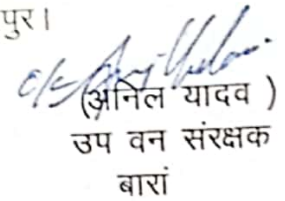 पुर।
(अनिल यादव )
उप वन संरक्षक
बारां